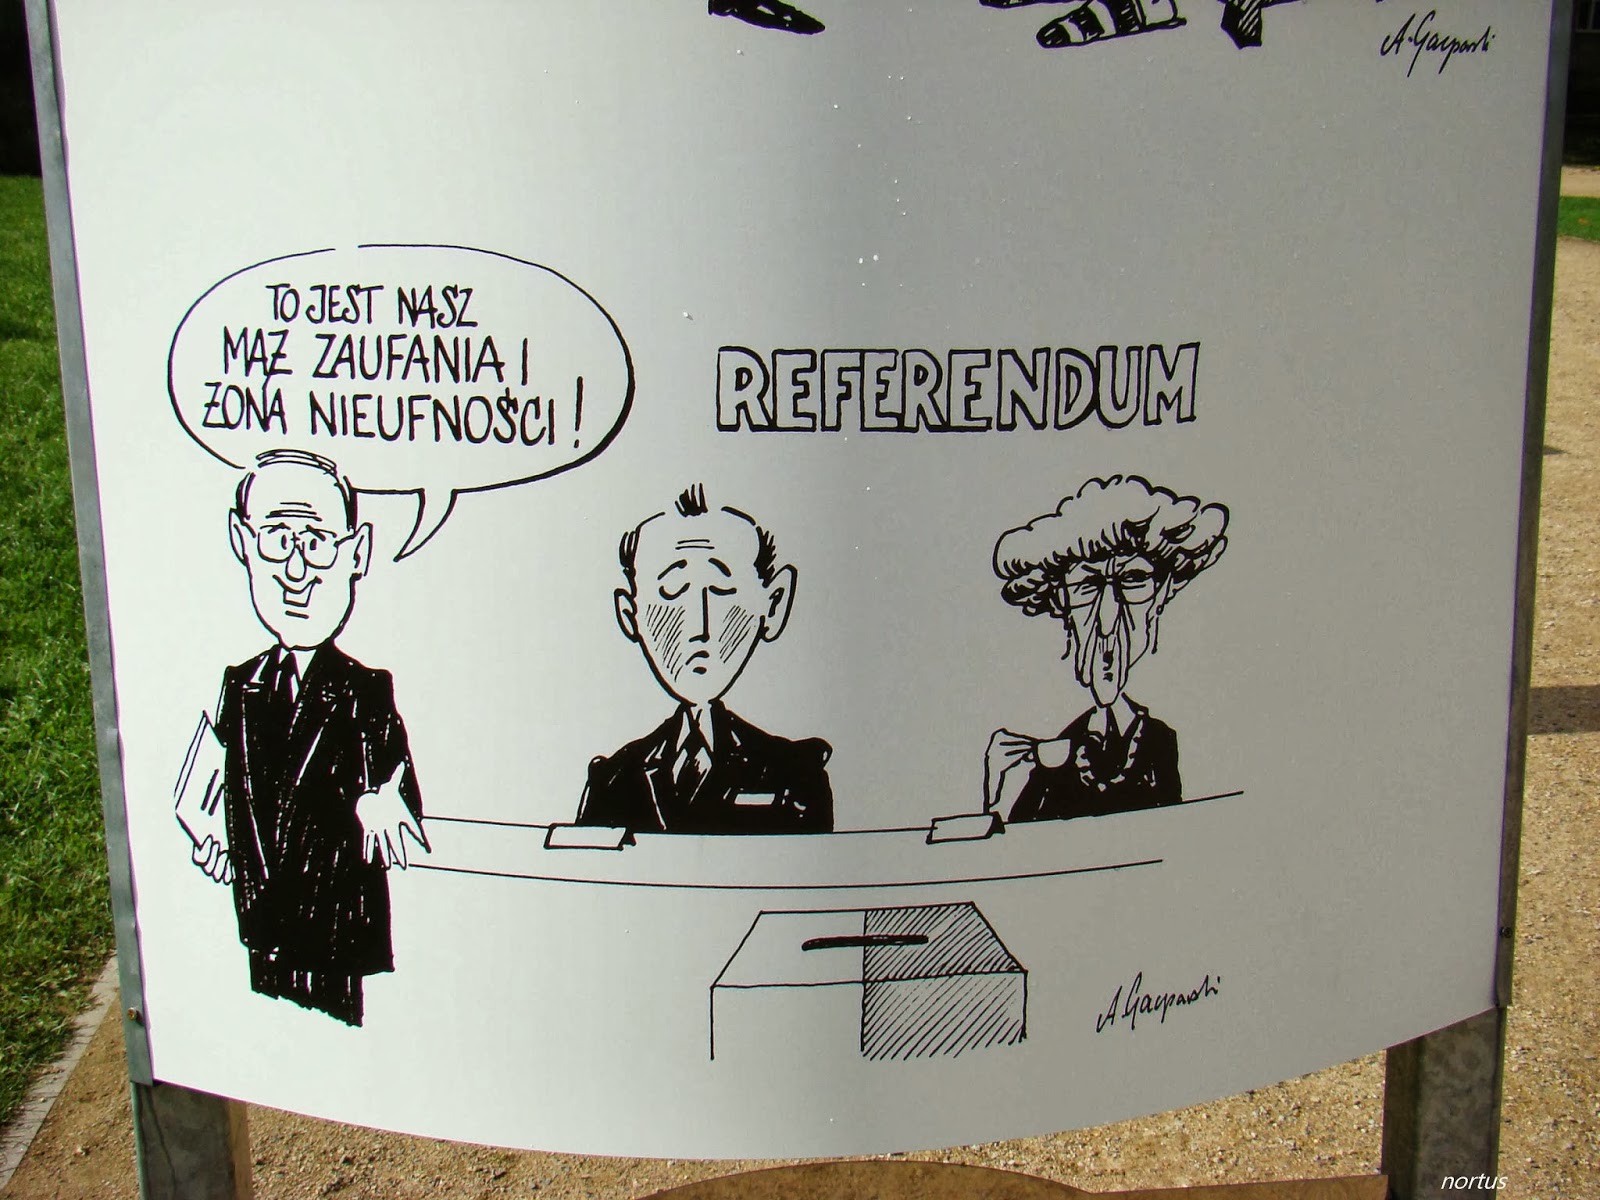 A. Gasparski
TO JEST NASZ
MĄŻ ZAUFANIA I
ŻONA NIEUFNOŚCI!
REFERENDUM
A. Gasparski
nortus